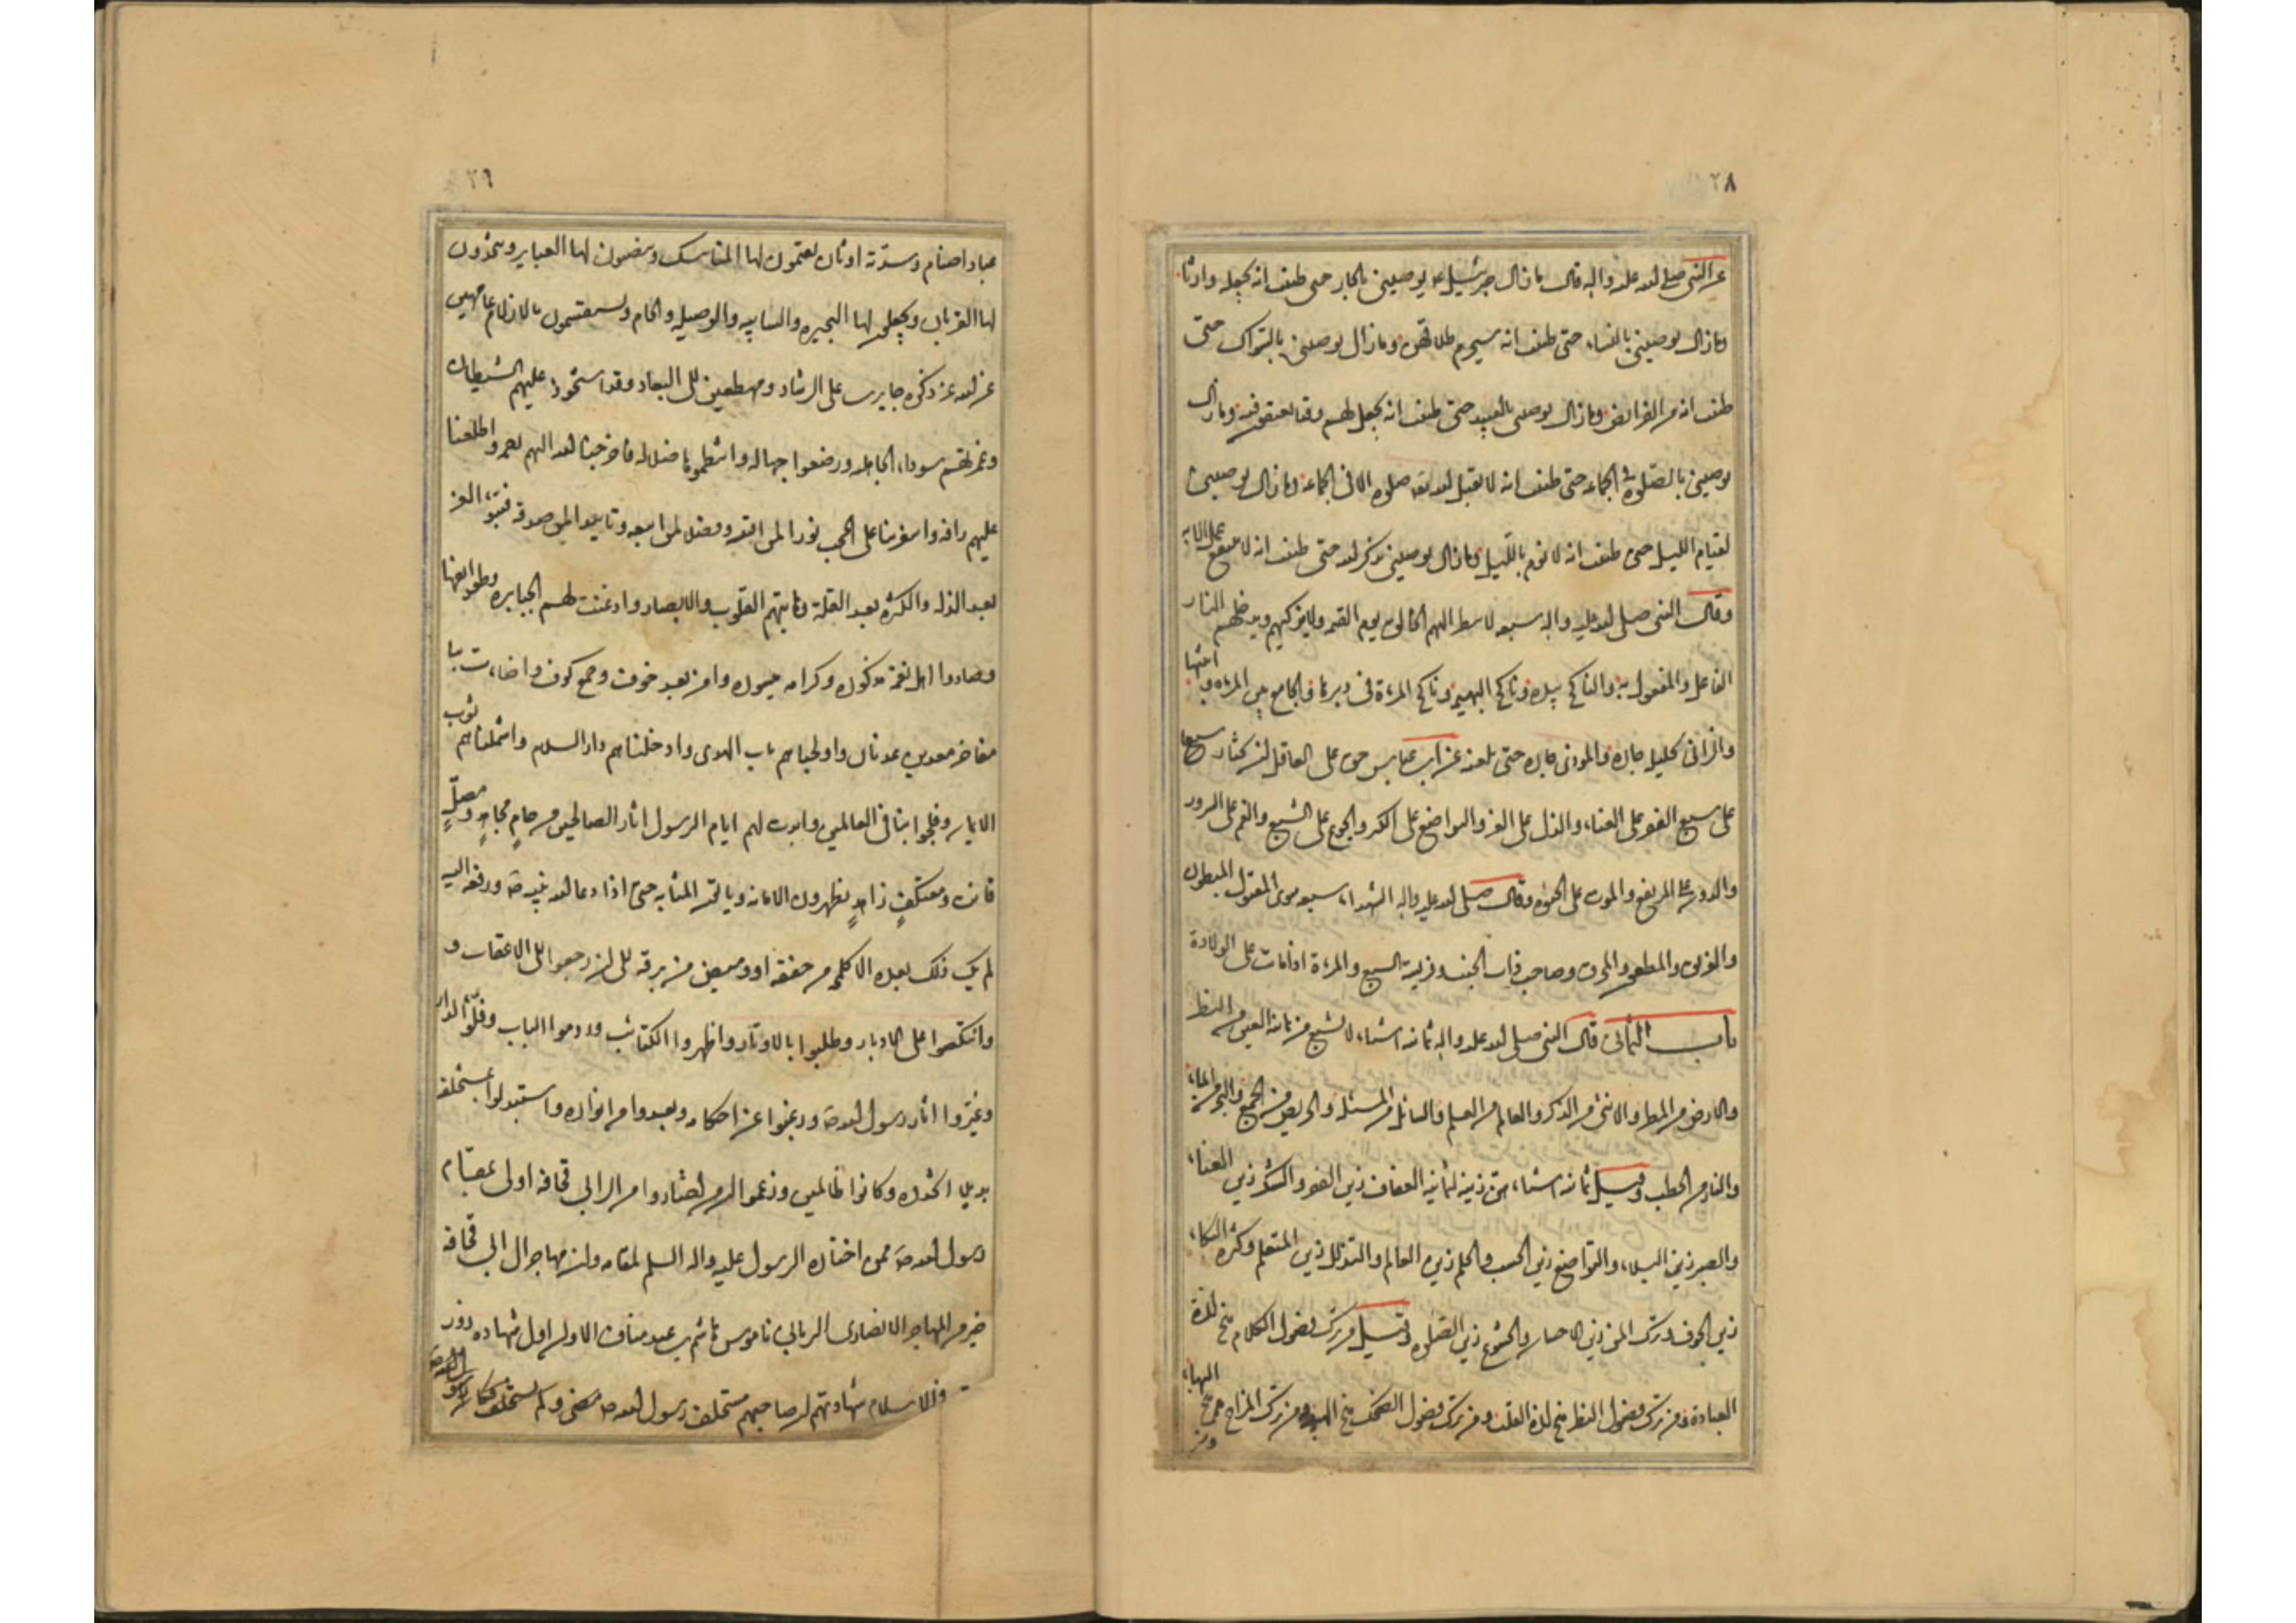 ٢٨
عن النبي صلى الله عليه واله قال ما زال جبرئيل ع يوصيني بالجار حتى ظننت انه يجعله وارثا
وما زال يوصيني بالنساء حتى ظننت انه سيحرم طلاقهن وما زال يوصيني بالسواك حتى
ظننت انه من الفرائض وما زال يوصيني بالعبيد حتى ظننت انه يجعل لهم وقتا يعتقون فيه وما زال
يوصيني بالصلوة في الجماعة حتى ظننت انه لا يقبل الله صلوة الا في الجماعة وما زال يوصيني
بقيام الليل حتى ظننت انه لا نوم بالليل وما زال يوصيني بذكر الله حتى ظننت انه لا ينفع عمل الا به
وقال النبي صلى الله عليه واله سبعة لا ينظر اليهم الخالق يوم القيمة ولا يزكيهم ويدخلهم النار
الفاعل والمفعول به والناكح بيده وناكح البهيمة وناكح المرءة في دبرها والجامع بين المرءة وابنتها
والزاني بحليلة جاره والموذي جاره حتى يلعنه عن ابن عباس حق على العاقل ان يختار سبعا
على سبع الفقر على الغناء والذل على العز والتواضع على الكبر والجوع على الشبع والغم على السرور
والدون على المرتفع والموت على الحيوة وقال صلى الله عليه واله الشهداء سبعة سوى المقتول المبطون
والغريق والمطعون والحرق وصاحب ذات الجنب وفريسة السبع والمرءة اذا ماتت على الولادة
باب الثماني قال النبي صلى الله عليه واله ثمانية اشياء لا تشبع من ثمانية العين من النظر
والارض من المطر والانثى من الذكر والعالم من العلم والسائل من المسئلة والحريص من الجمع والبحر من الماء
والنار من الحطب وقيل ثمانية اشياء هن زينة لثمانية العفاف زين الفقر والشكر زين الغناء
والصبر زين البلاء والتواضع زين الحسب والحلم زين العالم والتذلل زين المتعلم وكثرة البكاء
زين الخوف وترك المن زين الاحسان والخشوع زين الصلوة وقيل من ترك فضول الكلام منح لذة
العبادة ومن ترك فضول النظر منح لذة القلب ومن ترك فضول الضحك منح الهيبة ومن ترك المزاح منح البهاء
ومن
٢٩
عباد اصنام وسدنة اوثان يعتمون لها المناسك لها العباير ويتخذون
لها القربان ويجعلون لها البحيرة والسايبة والوصيلة والحام ويستقسمون بالازلام عامهين
عن الله عز ذكره حايرين على الرشاد ومهطعين الى البعاد وقد استحوذ عليهم الشيطان
وغمرتهم سوداء الجاهلية ورضعوا جهالة ضلالة فاخرجنا الله اليهم رحمة واطلعنا
عليهم رافة واسفر بنا على الحجب نورا لمن اقتبسه وفضلا لمن اتبعه وتاييدا لمن صدقه فتبوّؤا العز
بعد الذلة والكثرة بعد القلة وهابتهم القلوب والابصار واذعنت لهم الجبابرة وطوايفها
وصاروا اهل نعمة مذكورة وكرامة ميسورة وامن بعد خوف وجمع كوف واضاءت بنا
مفاخر معد بن عدنان واولجناهم باب الهدى وادخلناهم دار السلام واشملناهم ثوب
الايمان وفلجوا بنا في العالمين وابدت لهم ايام الرسول اثار الصالحين من حام مجاهد ومصلّ
قانت ومعتكف زاهد يظهرون الامانة وياتون المثابة حتى اذا دعا الله نبيه ص ورفعه اليه
لم يك ذلك بعده الا كلمحة من خفقة او وميض من برقة الى ان رجعوا على الاعقاب و
وانتكصوا على الادبار وطلبوا بالاوتار واظهروا الكتائب وردموا الباب وفلّوا الدار
وغيّروا اثار رسول الله ص ورغبوا عن احكامه وبعدوا من انواره واستبدلوا بمستخلفه
بديلا اتخذوه وكانوا ظالمين وزعموا ان من اختاروا من آل ابي قحافة اولى بمقام
رسول الله ص ممن اختاره الرسول عليه واله السلم لمقامه وان مهاجر آل ابي قحافة
خير من المهاجر الانصاري الرباني ناموس هاشم بن عبد مناف الا وان اول شهادة زور
في الاسلام شهادتهم ان صاحبهم مستخلف رسول الله ص مضى ولم يستخلف فكان رسول الله ص